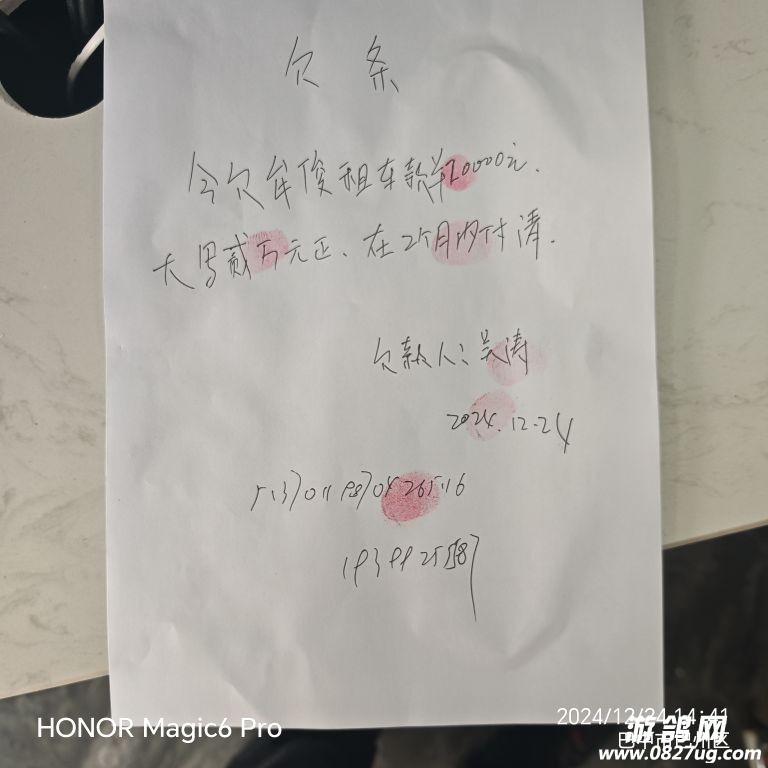 欠条
今欠牟俊租车款¥20000元.
大写贰万元正、在2个月内付清.
欠款人:吴涛
2024.12-24
HONOR Magic6 Pro
2024/12/24 14:41
游鸽网
www.0827ug.com